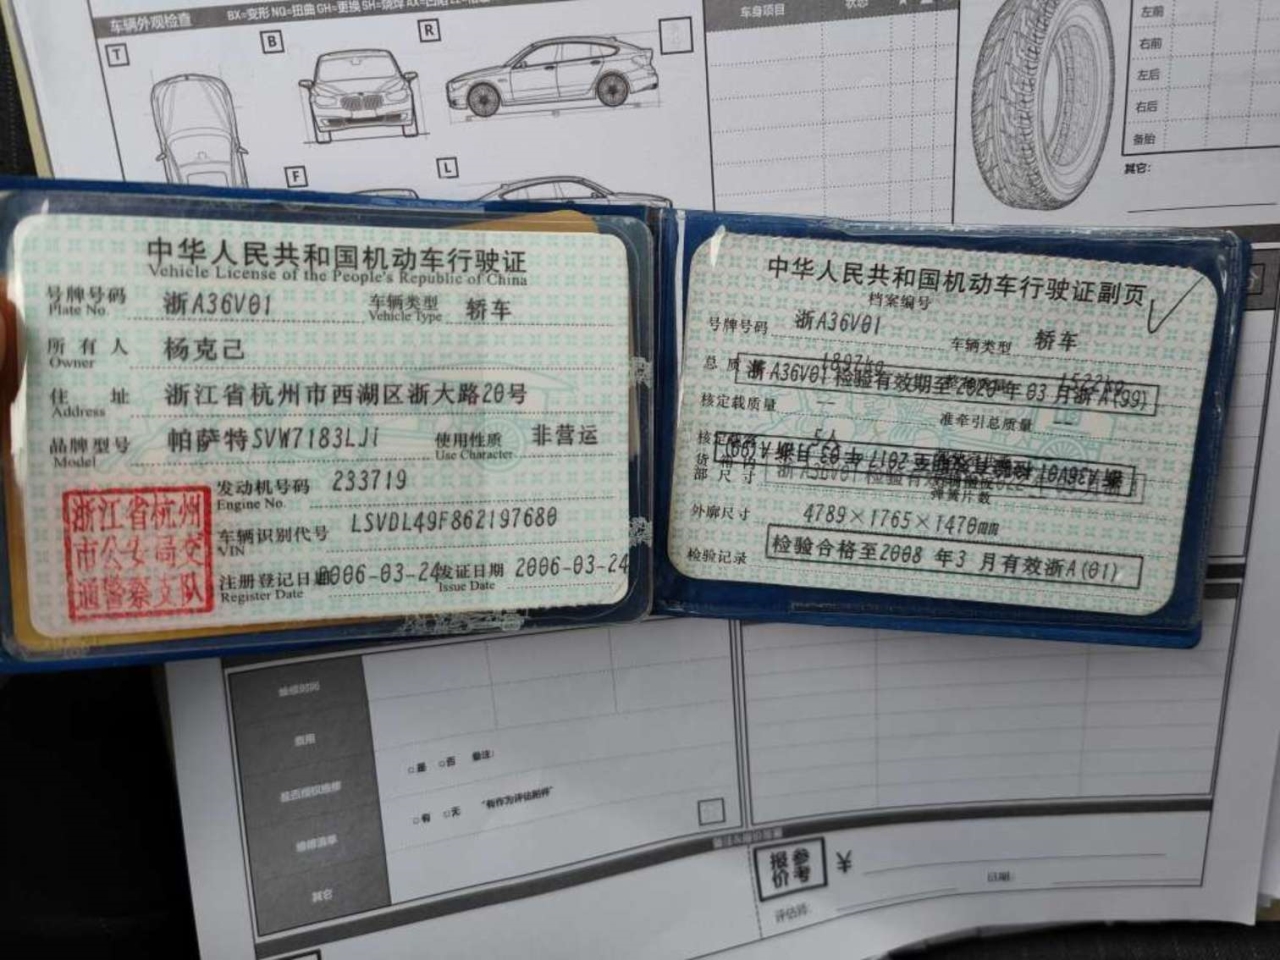 车辆外观检查
T
B
R
F
L
车身项目
状态
左前
右前
左后
右后
备胎
其它:
中华人民共和国机动车行驶证
Vehicle License of the People's Republic of China
号牌号码 浙A36V01 车辆类型 轿车
Plate No. Vehicle Type
所有人 杨克己
Owner
住址 浙江省杭州市西湖区浙大路20号
Address
品牌型号 帕萨特SVW7183LJi 使用性质 非营运
Model Use Character
浙江省杭州
市公安局交
通警察支队
发动机号码 233719
Engine No.
车辆识别代号 LSVDL49F862197680
VIN
注册登记日期 2006-03-24 发证日期 2006-03-24
Register Date Issue Date
中华人民共和国机动车行驶证副页
档案编号
号牌号码 浙A36V01 车辆类型 轿车
总质量 1897kg 1522kg
浙A36V01 检验有效期至2020年03月浙A(99)
核定载质量 -- 准牵引总质量 --
5人
浙A36V01 检验有效期至2017年03月浙A(99)
外廓尺寸 4789×1765×1470mm
检验记录 检验合格至2008年3月有效浙A(01)
维修时间
费用
是否授权维修 □是 □否 备注:
维修清单 □有 □无 "有作为评估附件"
其它
参考报价 ¥
日期:
评估师: